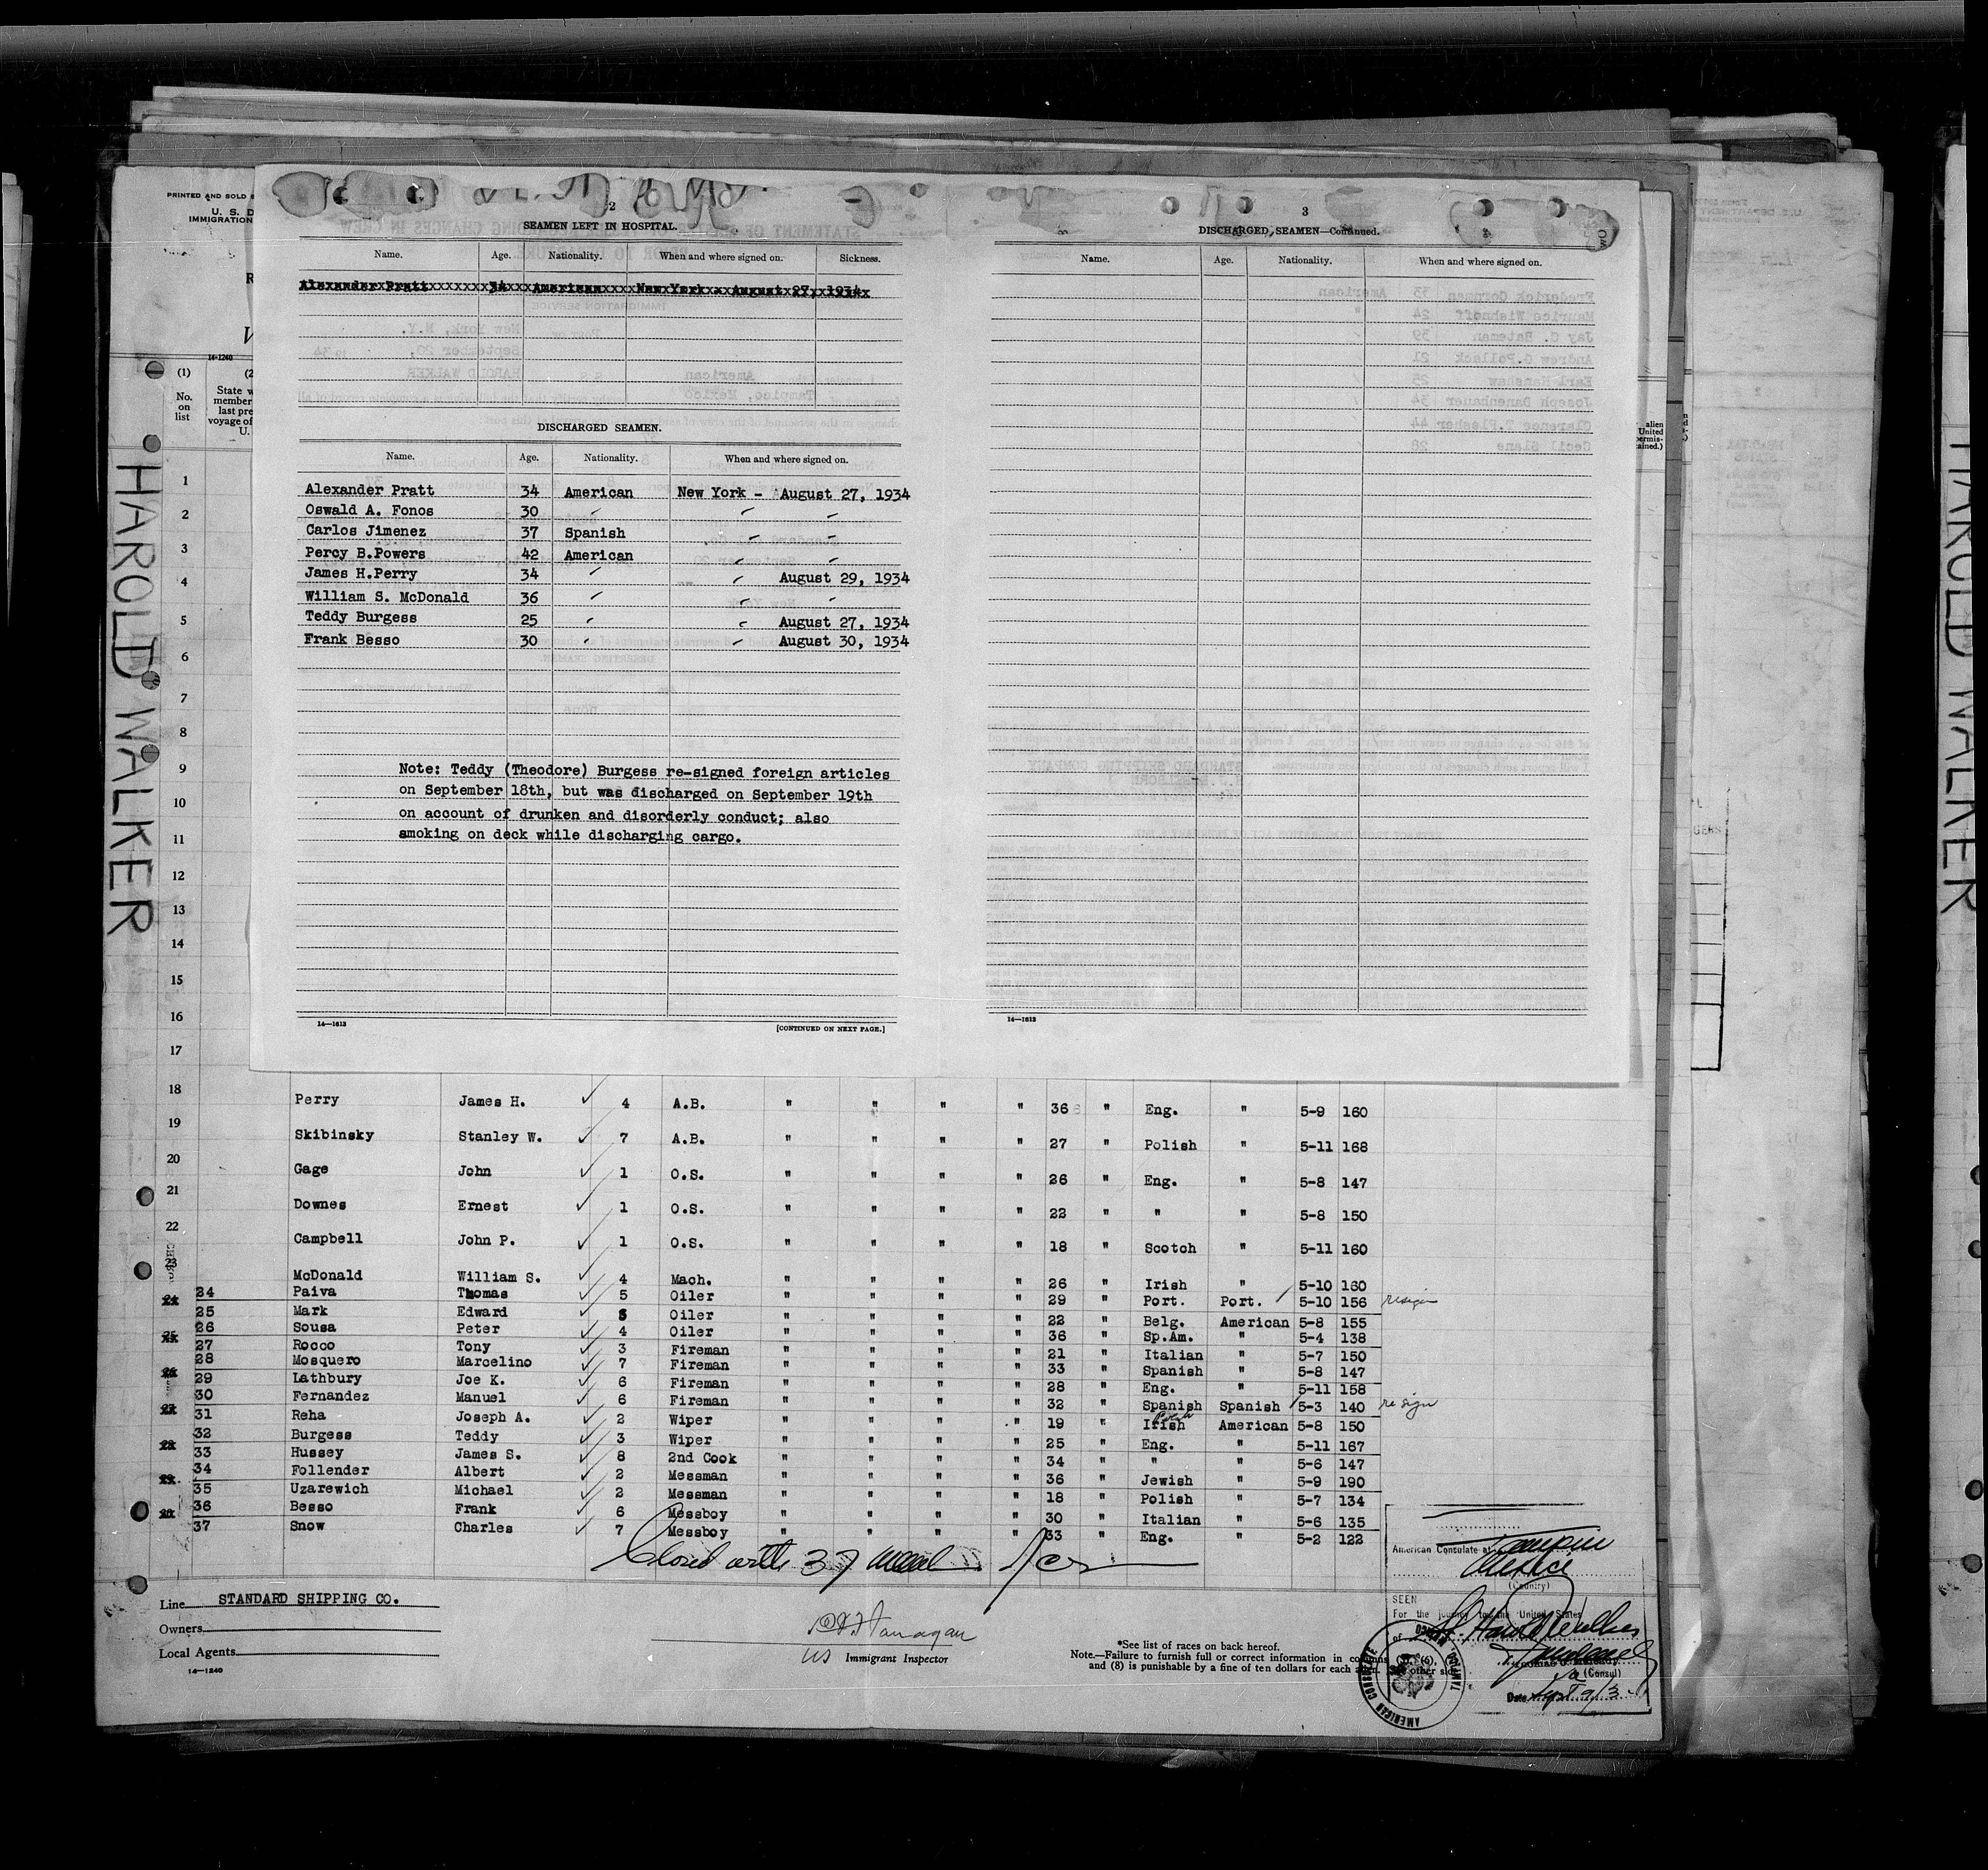 PRINTED AND SOLD
U. S. D
IMMIGRATION
14-1240
(1)
No.
on
list
(2
State w
member
last pre
voyage of
U.
HAROLD WALKER
2
SEAMEN LEFT IN HOSPITAL.
Name. Age. Nationality. When and where signed on. Sickness.
Alexander Pratt 34 American New York - August 27, 1934
DISCHARGED SEAMEN.
Name. Age. Nationality. When and where signed on.
Alexander Pratt 34 American New York - August 27, 1934
Oswald A. Fonos 30 " " "
Carlos Jimenez 37 Spanish " "
Percy B.Powers 42 American " "
James H.Perry 34 " " August 29, 1934
William S. McDonald 36 " " "
Teddy Burgess 25 " " August 27, 1934
Frank Besso 30 " " August 30, 1934
Note: Teddy (Theodore) Burgess re-signed foreign articles
on September 18th, but was discharged on September 19th
on account of drunken and disorderly conduct; also
smoking on deck while discharging cargo.
14—1613 [CONTINUED ON NEXT PAGE.]
3
DISCHARGED SEAMEN—Continued.
Name. Age. Nationality. When and where signed on.
14—1613
alien
United
permis-
ained.)
1
2
3
4
5
6
7
8
9
10
11
12
13
14
15
16
17
18
Perry James H. 4 A.B. " " " " 36 " Eng. " 5-9 160
19
Skibinsky Stanley W. 7 A.B. " " " " 27 " Polish " 5-11 168
20
Gage John 1 O.S. " " " " 26 " Eng. " 5-8 147
21
Downes Ernest 1 O.S. " " " " 22 " " " 5-8 150
22
Campbell John P. 1 O.S. " " " " 18 " Scotch " 5-11 160
23
McDonald William S. 4 Mach. " " " " 26 " Irish " 5-10 160
24 Paiva Thomas 5 Oiler " " " " 29 " Port. Port. 5-10 156 resign
25 Mark Edward 5 Oiler " " " " 22 " Belg. American 5-8 155
26 Sousa Peter 4 Oiler " " " " 36 " Sp.Am. " 5-4 138
27 Rocco Tony 3 Fireman " " " " 21 " Italian " 5-7 150
28 Mosquero Marcelino 7 Fireman " " " " 33 " Spanish " 5-8 147
29 Lathbury Joe K. 6 Fireman " " " " 28 " Eng. " 5-11 158
30 Fernandez Manuel 6 Fireman " " " " 32 " Spanish Spanish 5-3 140 resign
31 Reha Joseph A. 2 Wiper " " " " 19 " Irish American 5-8 150
32 Burgess Teddy 3 Wiper " " " " 25 " Eng. " 5-11 167
33 Hussey James S. 8 2nd Cook " " " " 34 " " " 5-6 147
34 Follender Albert 2 Messman " " " " 36 " Jewish " 5-9 190
35 Uzarewich Michael 2 Messman " " " " 18 " Polish " 5-7 134
36 Besso Frank 6 Messboy " " " " 30 " Italian " 5-6 135
37 Snow Charles 7 Messboy " " " " 33 " Eng. " 5-2 122
Closed with 37
Line STANDARD SHIPPING CO.
Owners
Local Agents
14—1240
US Immigrant Inspector
*See list of races on back hereof.
Note.—Failure to furnish full or correct information in columns
and (8) is punishable by a fine of ten dollars for each
American Consulate at Tampico
Mexico
(Country)
SEEN
For the journey to the United States
of
(Consul)
Date Sept
AMERICAN CONSULATE
TAMPICO, MEXICO
HAROLD WALKER